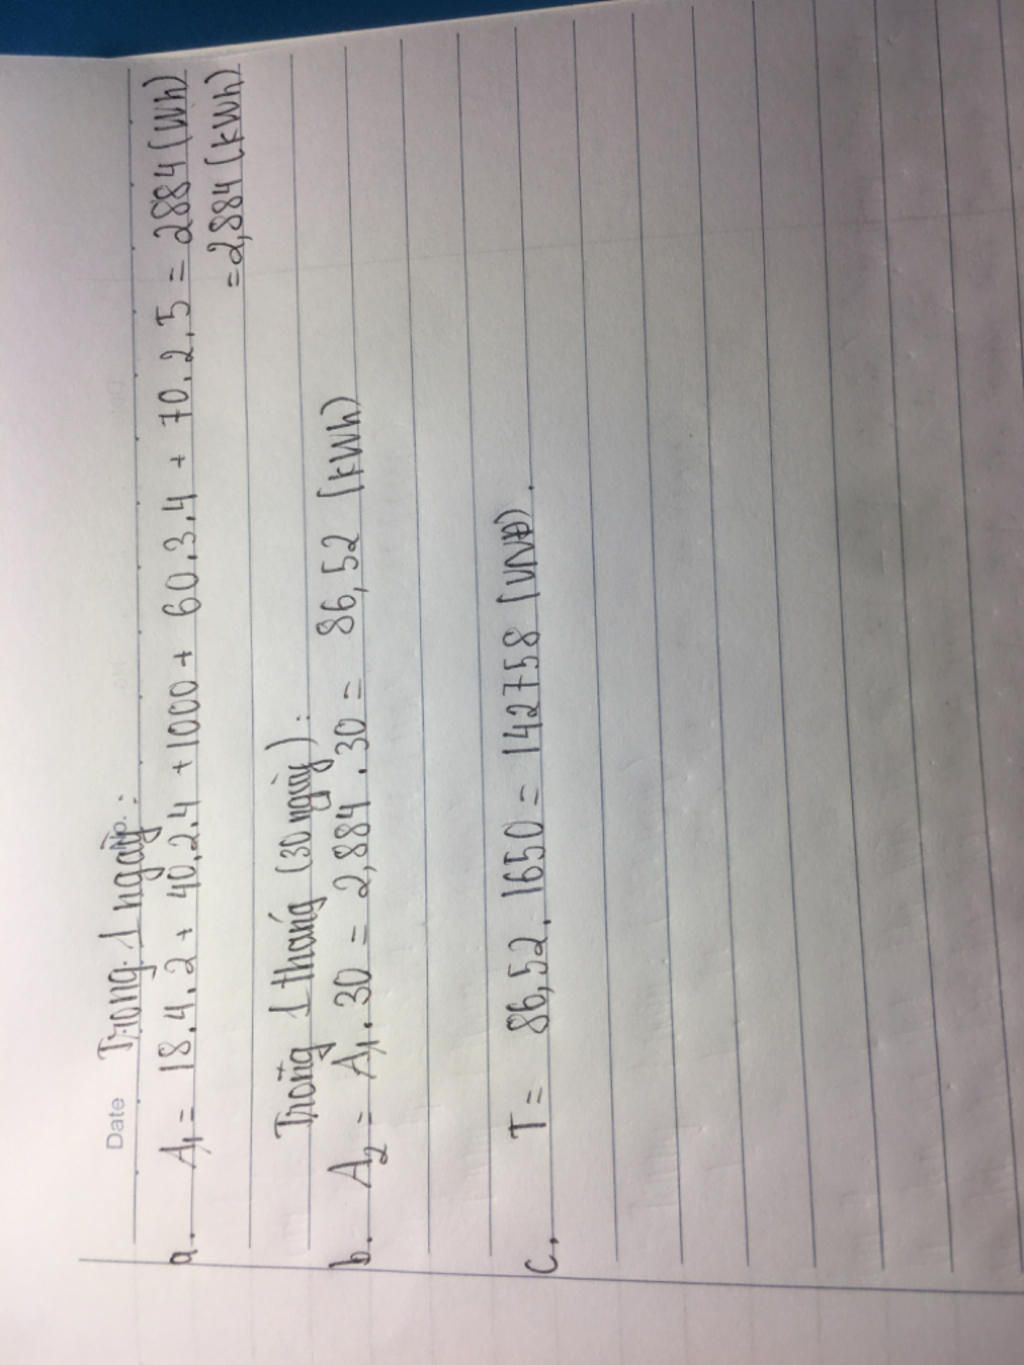 Date Trong 1 ngày No. :
a. A₁ = 18.4.2 + 40.2.4 + 1000 + 60.3.4 + 70.2.5 = 2884 (Wh)
= 2,884 (kWh)
Trong 1 tháng (30 ngày) :
b. A₂ = A₁.30 = 2,884 . 30 = 86,52 (kWh)
c. T = 86,52 . 1650 = 142758 (VNĐ) .